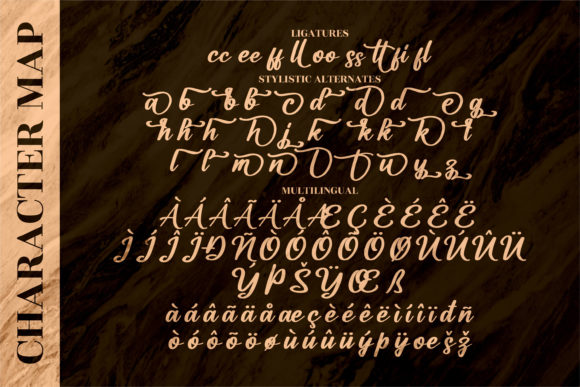 CHARACTER MAP
LIGATURES
cc ee ff ll oo ss tt fi fl
STYLISTIC ALTERNATES
MULTILINGUAL
ÀÁÂÃÄÅÆÇÈÉÊË
ÌÍÎÏÐÑÒÓÔÕÖØÙÚÛÜ
ÝÞŠŸŒß
àáâãäåæçèéêëìíîïđñ
òóôõöøùúûüýþÿœšž